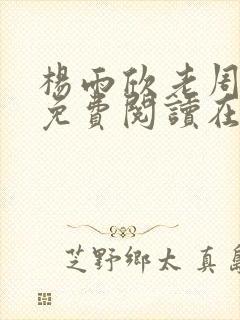 楊雨欣老周
免費閱讀在
芝野鄉太真島